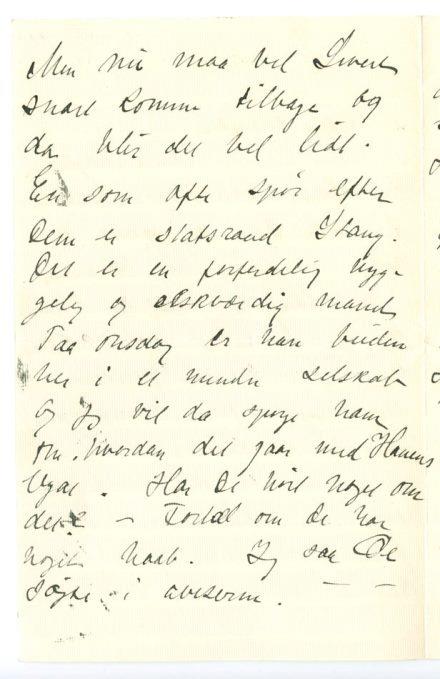 Men nu maa vel Sivert
snart komme tilbage og
da blir det vel lidt.
En som ofte spør efter
Dem er statsraad Stang.
Det er en forferdelig hyg-
gelig og elskværdig mand
Paa onsdag er han buden
her i et mindre selskab
og Jeg vil da spørge ham
om hvordan det gaar med
. Har De hørt noget om
det? – Fortæl om De har
noget haab. Jeg saa De
søgte i aviserne. – –